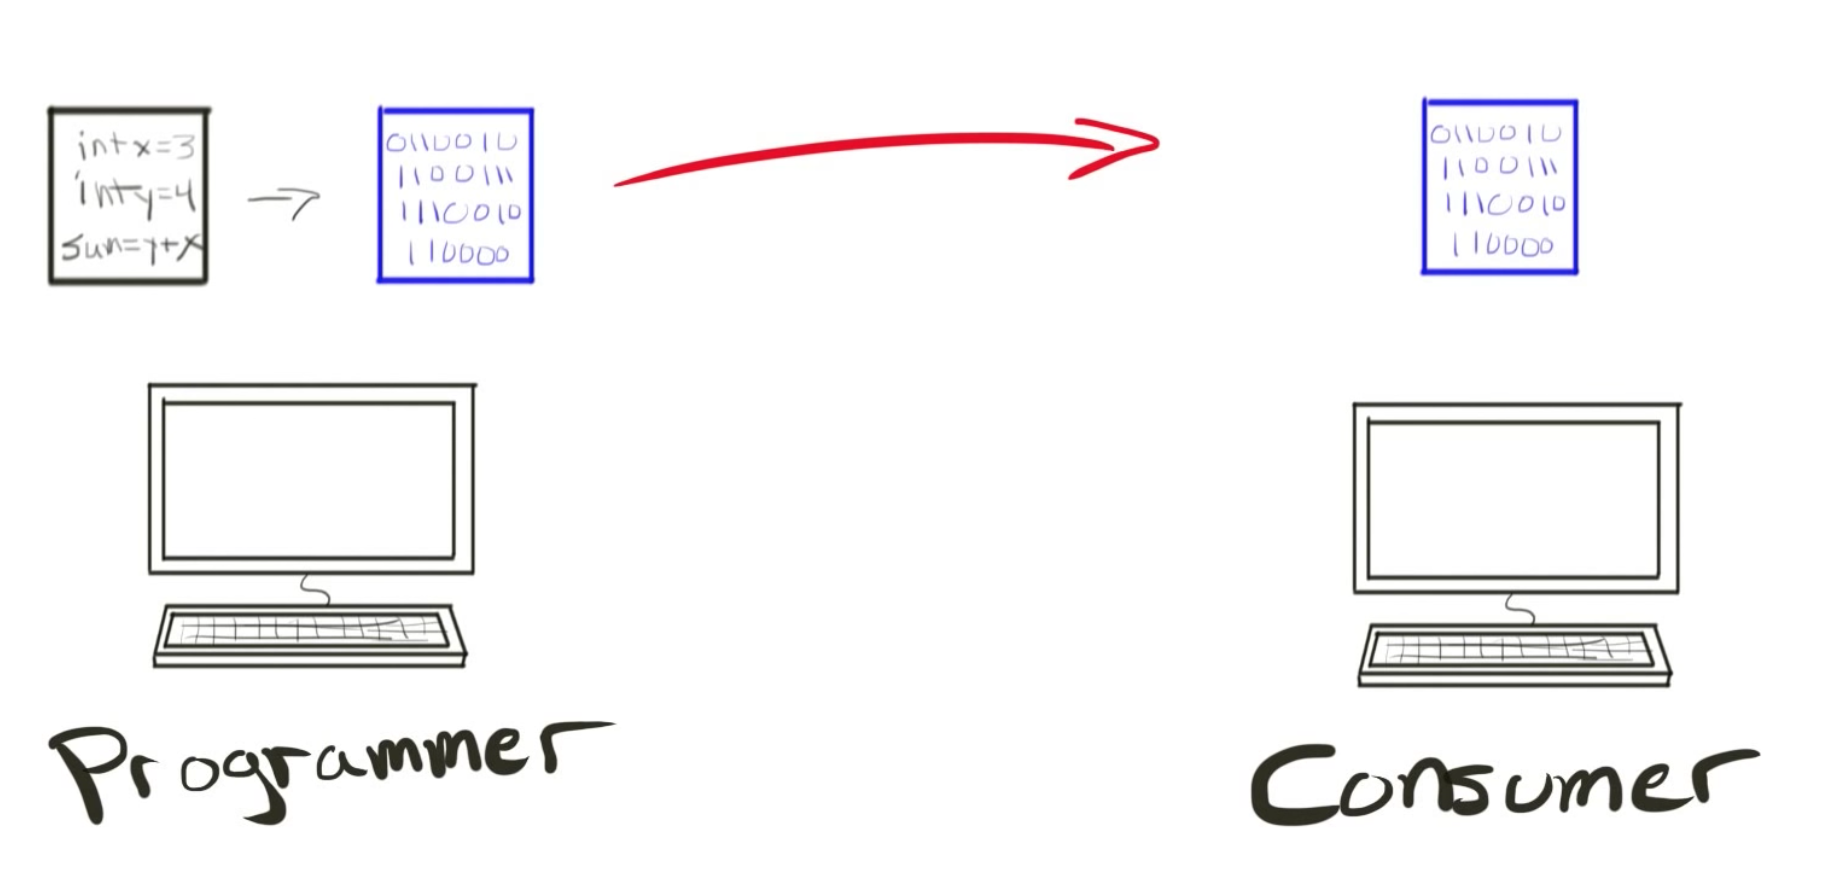 int x=3
int y=4
sum=y+x
0110010
1100111
1110010
110000
0110010
1100111
1110010
110000
Programmer
Consumer